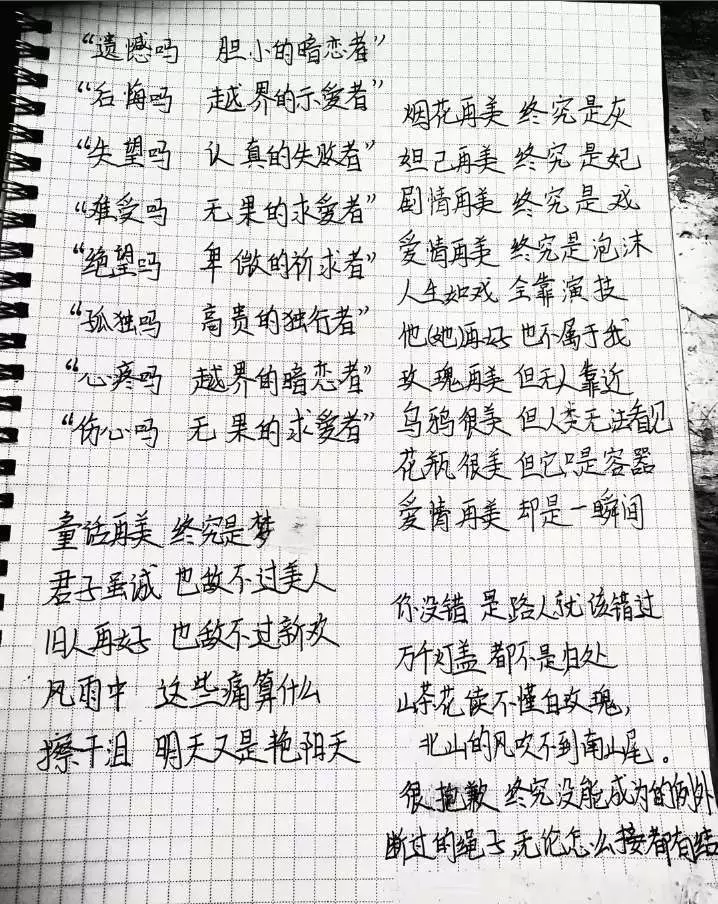 “遗憾吗 胆小的暗恋者”
“后悔吗 越界的示爱者”
“失望吗 认真的失败者”
“难受吗 无果的求爱者”
“绝望吗 卑微的祈求者”
“孤独吗 高贵的独行者”
“心疼吗 越界的暗恋者”
“伤心吗 无果的求爱者”
童话再美 终究是梦
君子虽诚 也敌不过美人
旧人再好 也敌不过新欢
风雨中 这些痛算什么
擦干泪 明天又是艳阳天
烟花再美 终究是灰
妲己再美 终究是妃
剧情再美 终究是戏
爱情再美 终究是泡沫
人生如戏 全靠演技
他(她)再好 也不属于我
玫瑰再美 但无人靠近
乌鸦很美 但人类无法看见
花瓶很美 但它只是容器
爱情再美 却是一瞬间
你没错 是路人就该错过
万千灯盏 都不是归处
山茶花读不懂白玫瑰,
北山的风吹不到南山尾。
很抱歉 终究没能成为的例外
断过的绳子,无论怎么接都有结